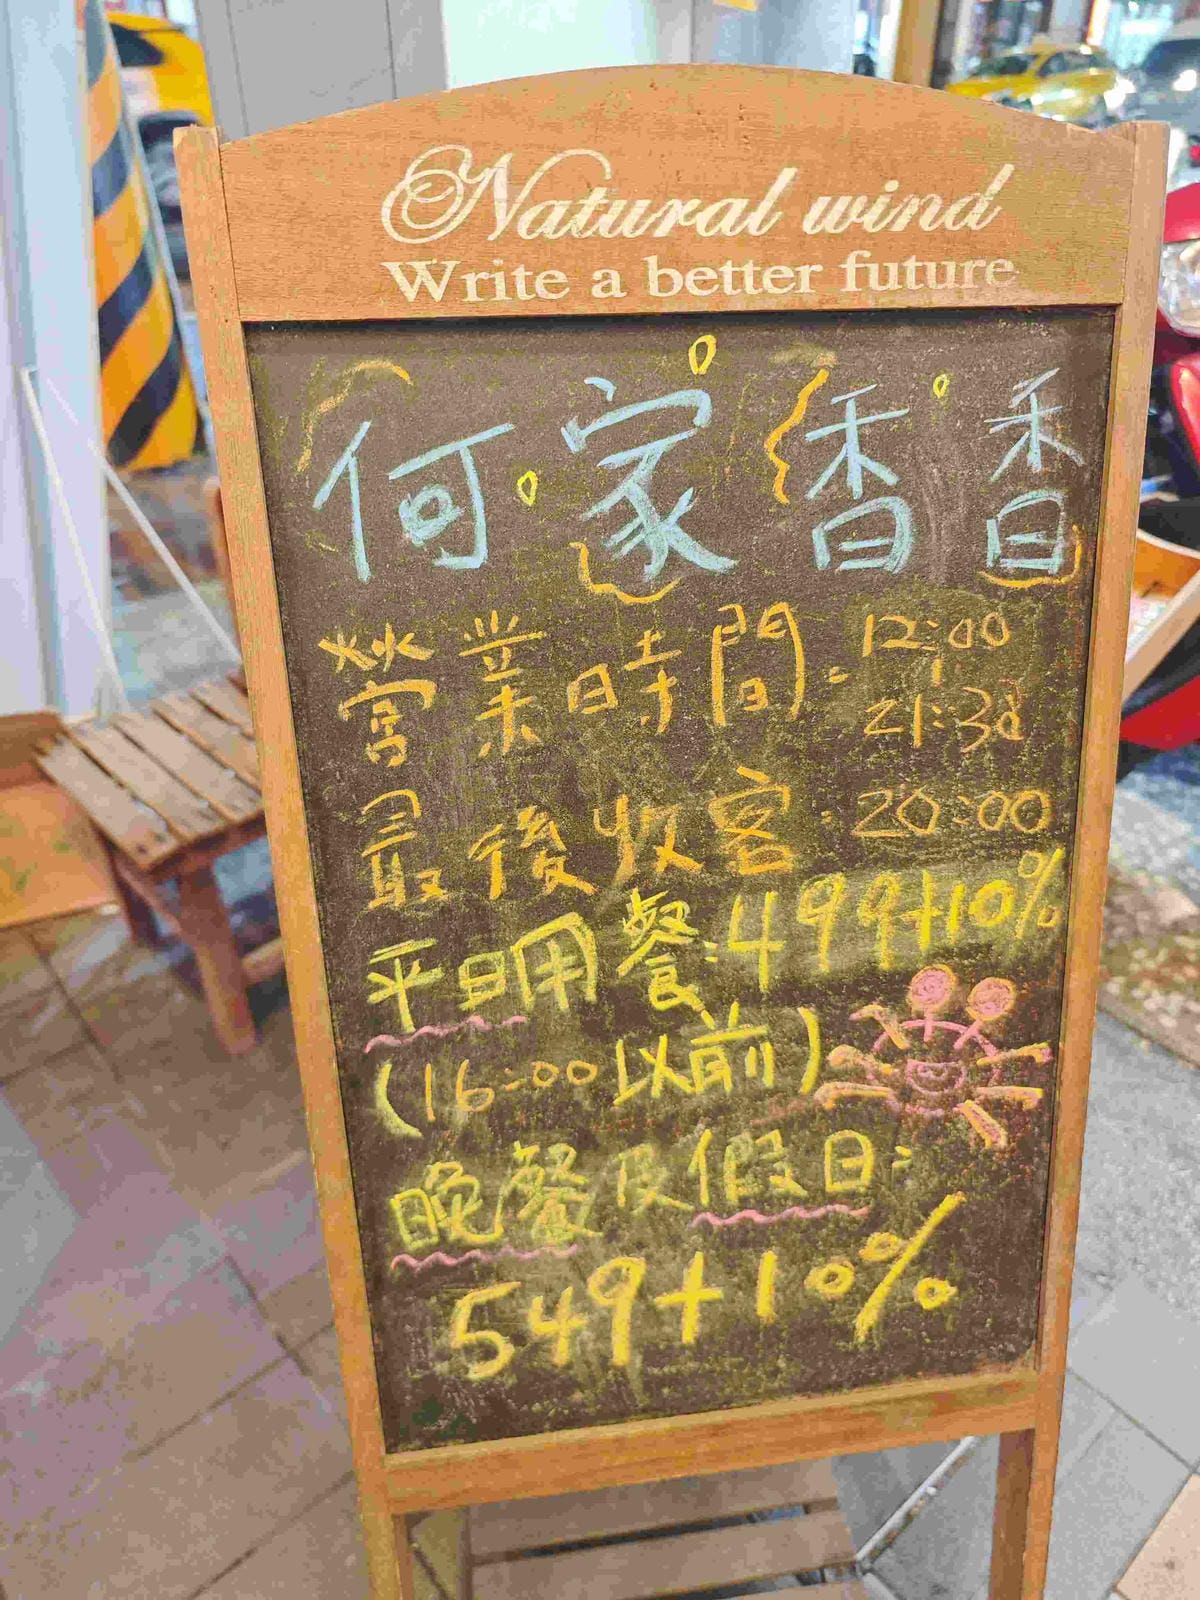 Natural wind
Write a better future
何家香香
營業時間：12:00
|
21:30
最後收客：20:00
平日用餐：499+10%
(16:00以前)
晚餐及假日：
549+10%